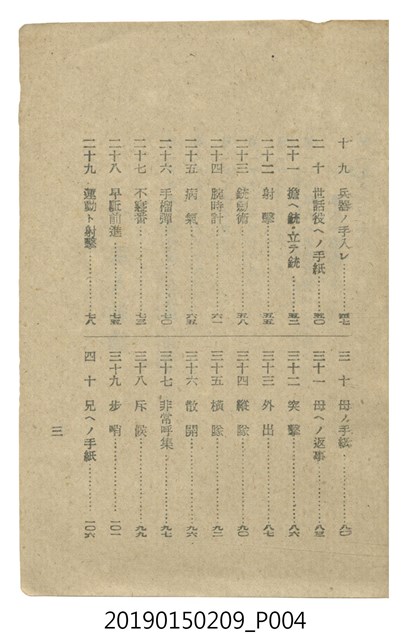 十九 兵器ノ手入レ……四七
二十 世話役ヘノ手紙……五〇
二十一 擔ヘ銃・立テ銃……五二
二十二 射擊……五五
二十三 銃劍術……五八
二十四 腕時計……六一
二十五 病氣……六五
二十六 手榴彈……七〇
二十七 不寢番……七三
二十八 早駈前進……七五
二十九 運動ト射擊……七八
三十 母ノ手紙……八〇
三十一 母ヘノ返事……八三
三十二 突擊……八六
三十三 外出……八七
三十四 縱隊……九〇
三十五 橫隊……九二
三十六 散開……九六
三十七 非常呼集……九七
三十八 斥候……九九
三十九 步哨……一〇一
四十 兄ヘノ手紙……一〇六
三
20190150209_P004